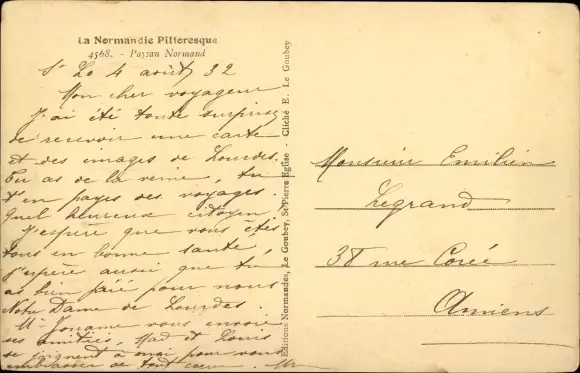 La Normandie Pittoresque
4568. - Paysan Normand
St Lo 4 août 32
Mon cher voyageur
J'ai été toute surprise
de recevoir une carte
et des images de Lourdes.
Tu as de la veine, tu
t'en payes des voyages.
Quel heureux citoyen.
J'espère que vous êtes
tous en bonne santé,
j'espère aussi que tu
as bien prié pour nous
Notre Dame de Lourdes.
Mr vous envoie
ses amitiés, Mad et Louis
se joignent à moi pour vous
embrasser de tout coeur.
Editions Normandes, Le Goubey, St Pierre Eglise - Cliché E. Le Goubey
Monsieur Emilien
Legrand
38 rue Corée
Amiens